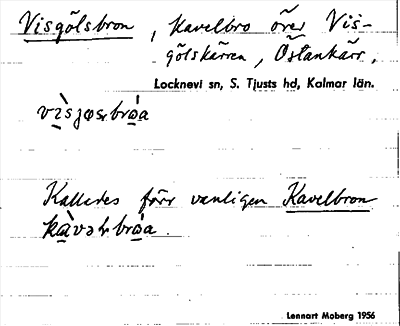 Visgölsbron, kavelbro över Vis-
gölskärren, Östankärr,
Locknevi sn, S. Tjusts hd, Kalmar län.
Kallades förr vanligen Kavelbron
Lennart Moberg 1956